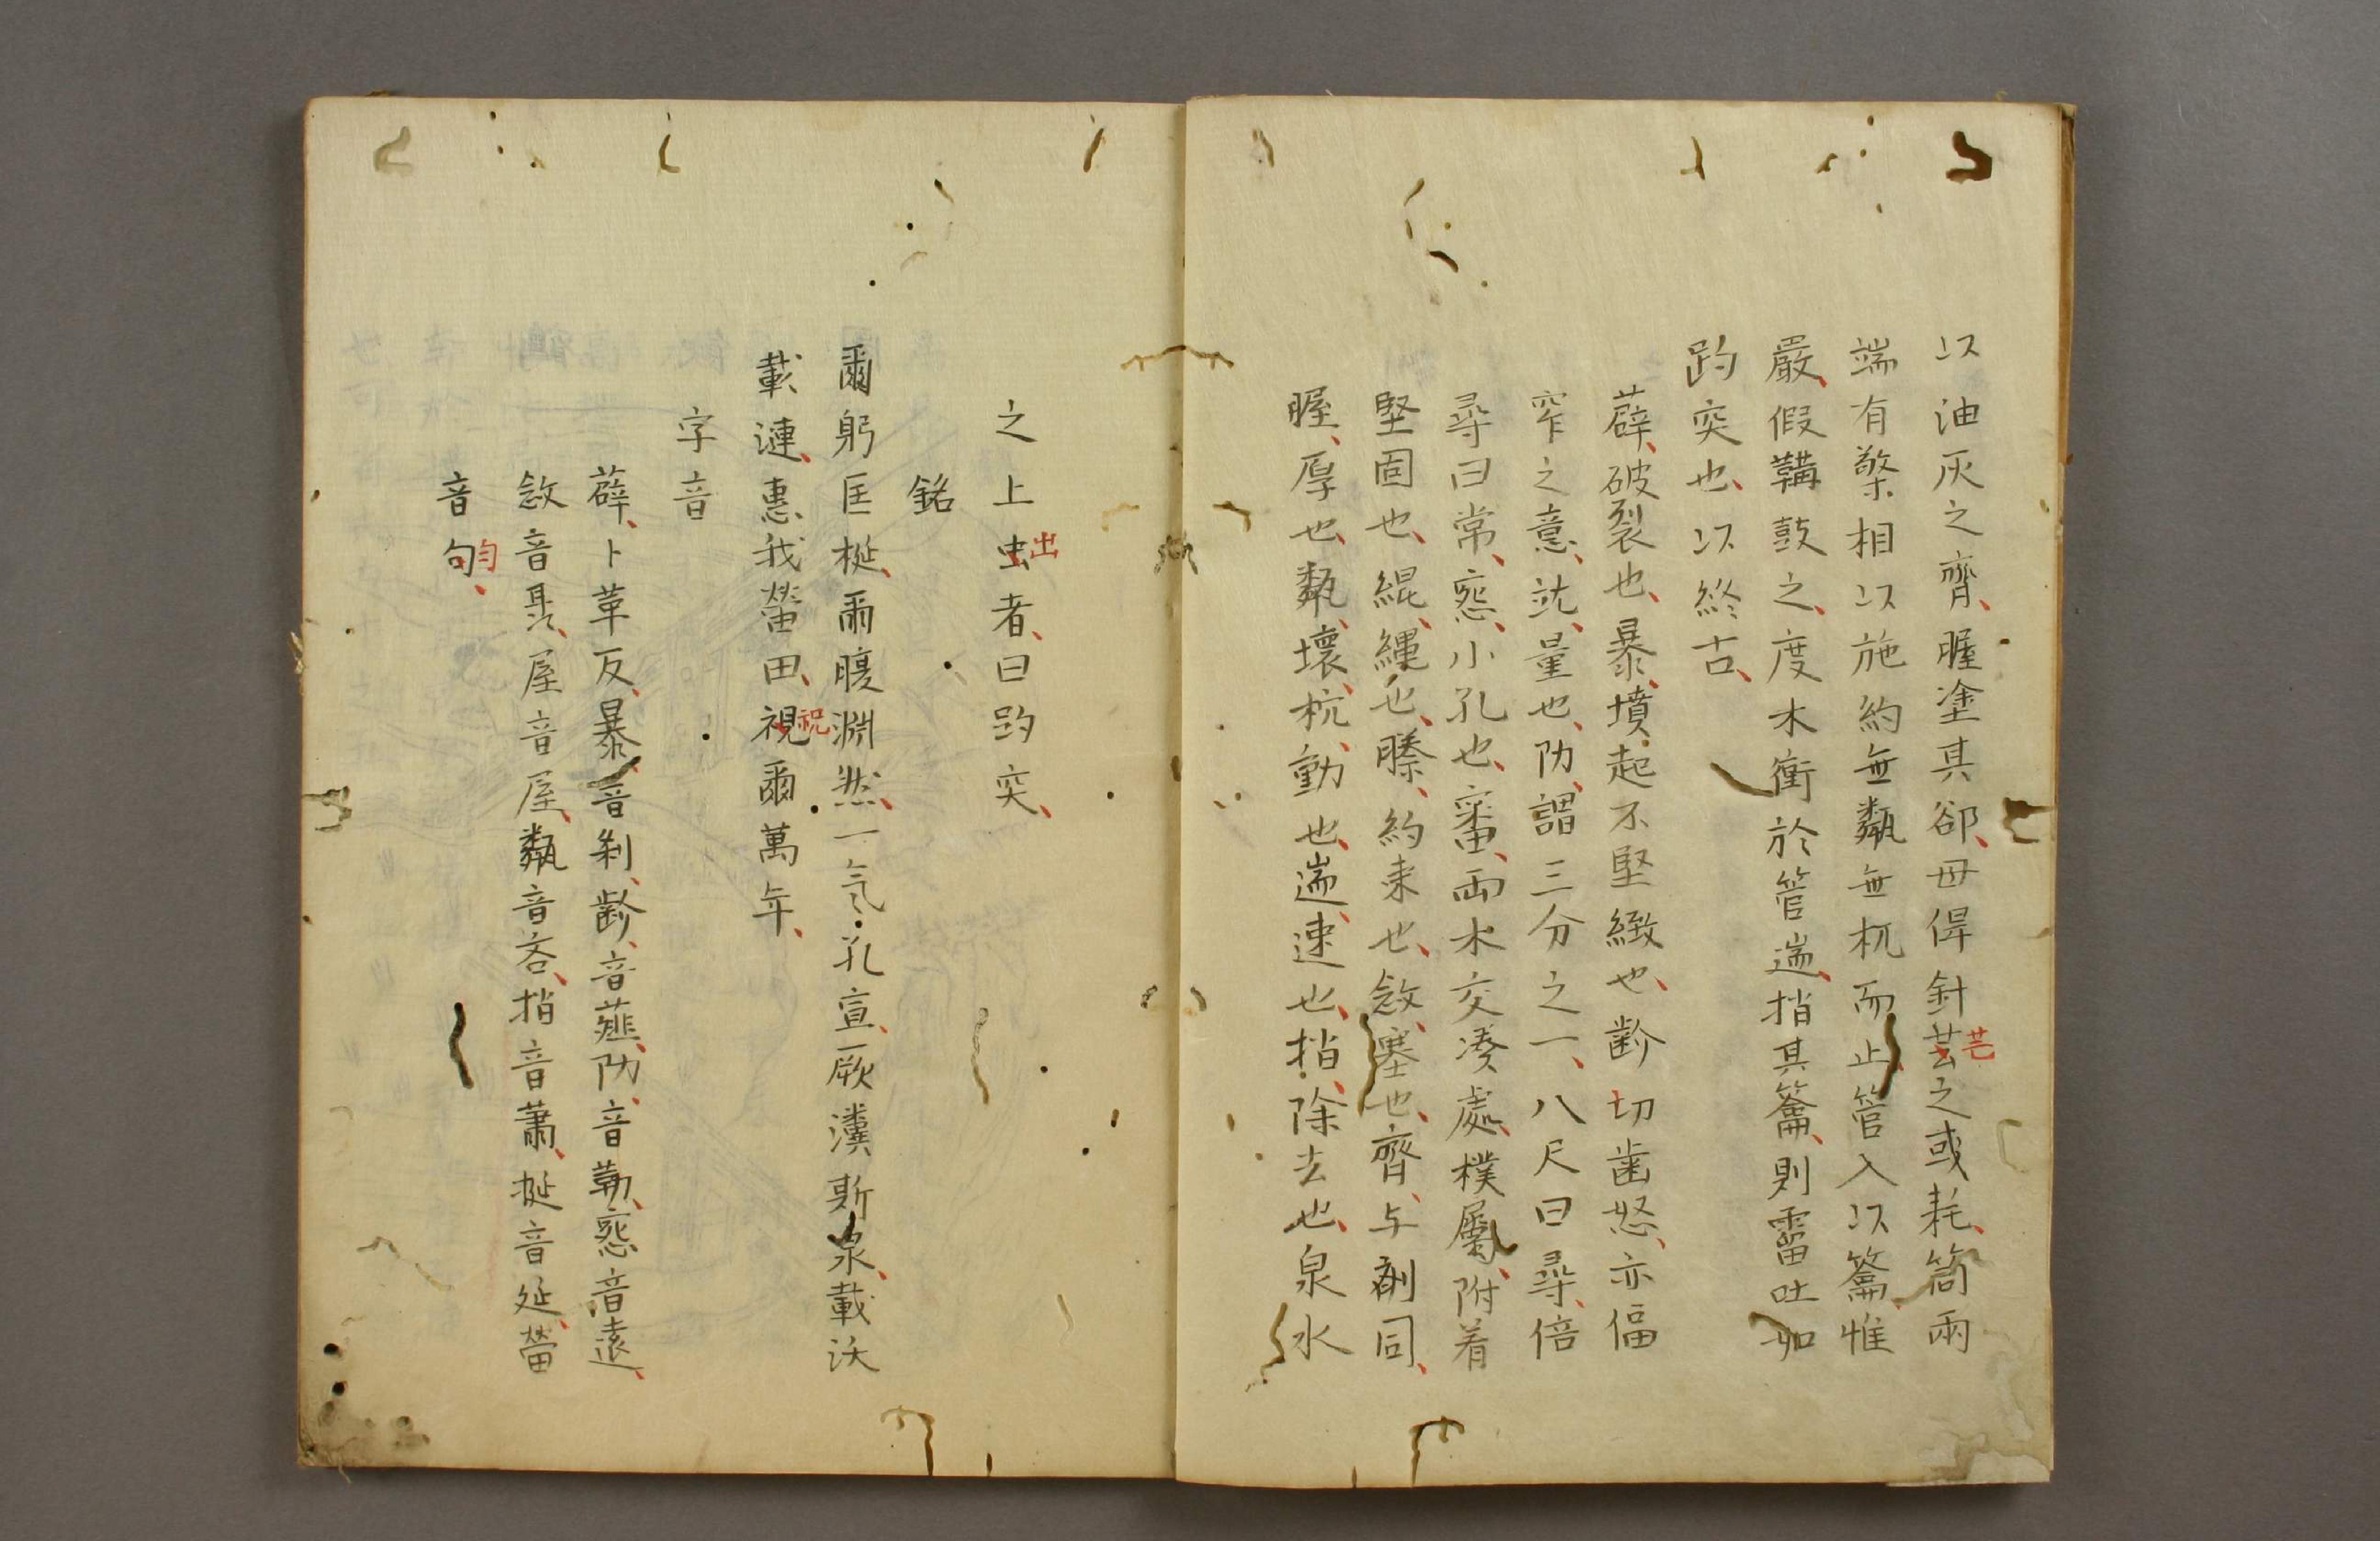 以油灰之齊、腛塗其郤、毋俾針芸之或耗、筩兩
芑
端有檠相以施約無甈無杌而止、管入以籥、惟
嚴、假鞲鼓之、度木衝於管遄、揹其籥、則霤吐如
趵突也、以終古、
薜、破裂也、暴、墳起不堅緻也、齘切歯怒、亦偪
窄之意、䇃、量也、阞、謂三分之一、八尺曰尋、倍
尋曰常、窓、小孔也、窷、兩木交湊處、樸屬、附着
堅固也、緄、縄也、縢、約束也、敜、塞也、齊、与劑同、
腛、厚也、甈、壞、杭、動也、遄、速也、揹、除去也、泉水
之上虫者、曰趵突、
出
銘
爾躬匡梃、爾腹淵然、一气孔宣、厥瀵斯泉、載沃
載漣、惠我葘田、視爾萬年、
祝
字音
薜、卜革反、暴、音剝、齘、音薤、阞、音勒、窓音遠、
敜音聶、屋音屋、甈音臬、揹音蕭、梃音延、葘
音句、
勻